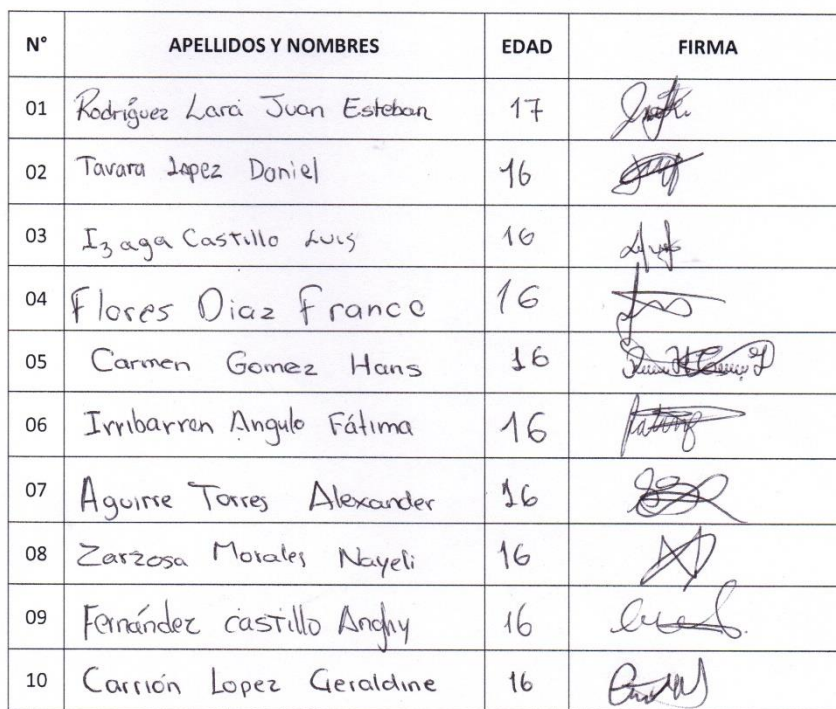 N° APELLIDOS Y NOMBRES EDAD FIRMA
01 Rodríguez Lara Juan Esteban 17
02 Tavara Lopez Daniel 16
03 Izaga Castillo Luis 16
04 Flores Diaz Franco 16
05 Carmen Gomez Hans 16
06 Irribarren Angulo Fátima 16
07 Aguirre Torres Alexander 16
08 Zarzosa Morales Nayeli 16
09 Fernández castillo Anghy 16
10 Carrión Lopez Geraldine 16